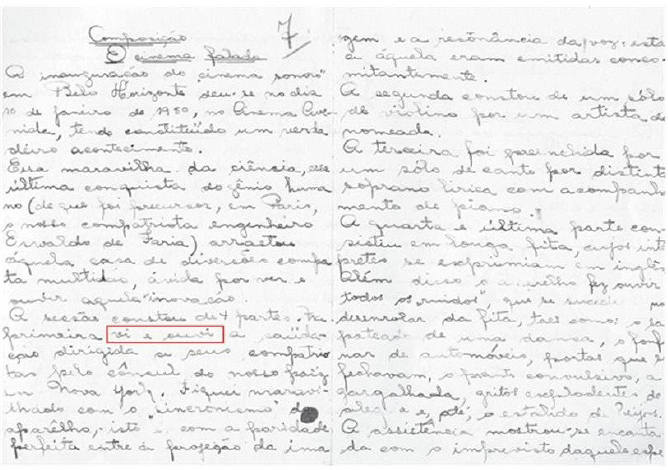 Composição
7
O cinema falado
A inauguração do cinema sonoro
em Belo Horizonte deu-se no dia
10 de janeiro de 1930, no Cinema Ave-
nida, tendo constituído um verda
deiro acontecimento.
Essa maravilha da ciência, essa
última conquista do gênio huma
no (de que foi precursor, em Paris,
o nosso compatriota engenheiro
de Faria) arrastou
àquela casa de diversões compa
ta multidão, ávida por ver e
ouvir aquela inovação.
A secsão constou de 4 partes. Na
primeira vi e ouvi a saúda-
ção dirigida a seus compatrio
tas pelo cônsul do nosso paiz
em Nova York. Fiquei maravi-
lhado com o "sincronismo" do
aparêlho, isto é, com a paridade
perfeita entre a projeção da ima
gem e a resonância da voz: esta
e àquela eram emitidas conco-
mitantemente.
A segunda constou de um sólo
de violino por um artista de
nomeada.
A terceira foi preenchida por
um sólo de canto por distinta
soprano lírica com acompanha
mento de piano.
A quarta e última parte con-
sistiu em longa fita, cujos intér
pretes se exprimiam em inglês.
Além disso o aparelho fez ouvir
todos os ruidos, que se sucede no
desenrolar da fita, tais como: o sa
pateado de uma dansa, o fonfo
nar de automóveis, portas que se
fechavam, o pranto convulsivo, a
gargalhada, gritos exhuberantes de
alegria e, até, o estalido de beijos.
A assistência mostrou-se encanta
da com o imprevisto daquele espe